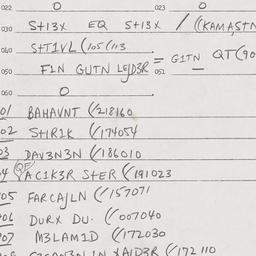 022 0 023 0
030 S+13X EQ S+13X / ((KAMASTN
040 S+T1VL (105(113
= G1TN QT(90
050 F1N GUTN LEJD3R 051
060 0
01 BAHAVNT ("218160
02 SHR1K ("174054
03 DAV3N3N ("186010
04 (QF) AC1K3R STER ("191023
05 FARCAJLN ("157071
06 DURX DU. ("007040
07 M3LAM1D ("172030
XA1D3R ("172110